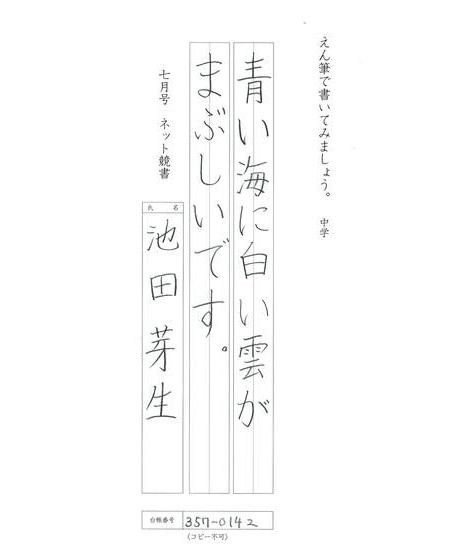 えん筆で書いてみましょう。 中学
青い海に白い雲が
まぶしいです。
七月号 ネット競書
氏名
池田芽生
台帳番号 357-0142
(コピー不可)